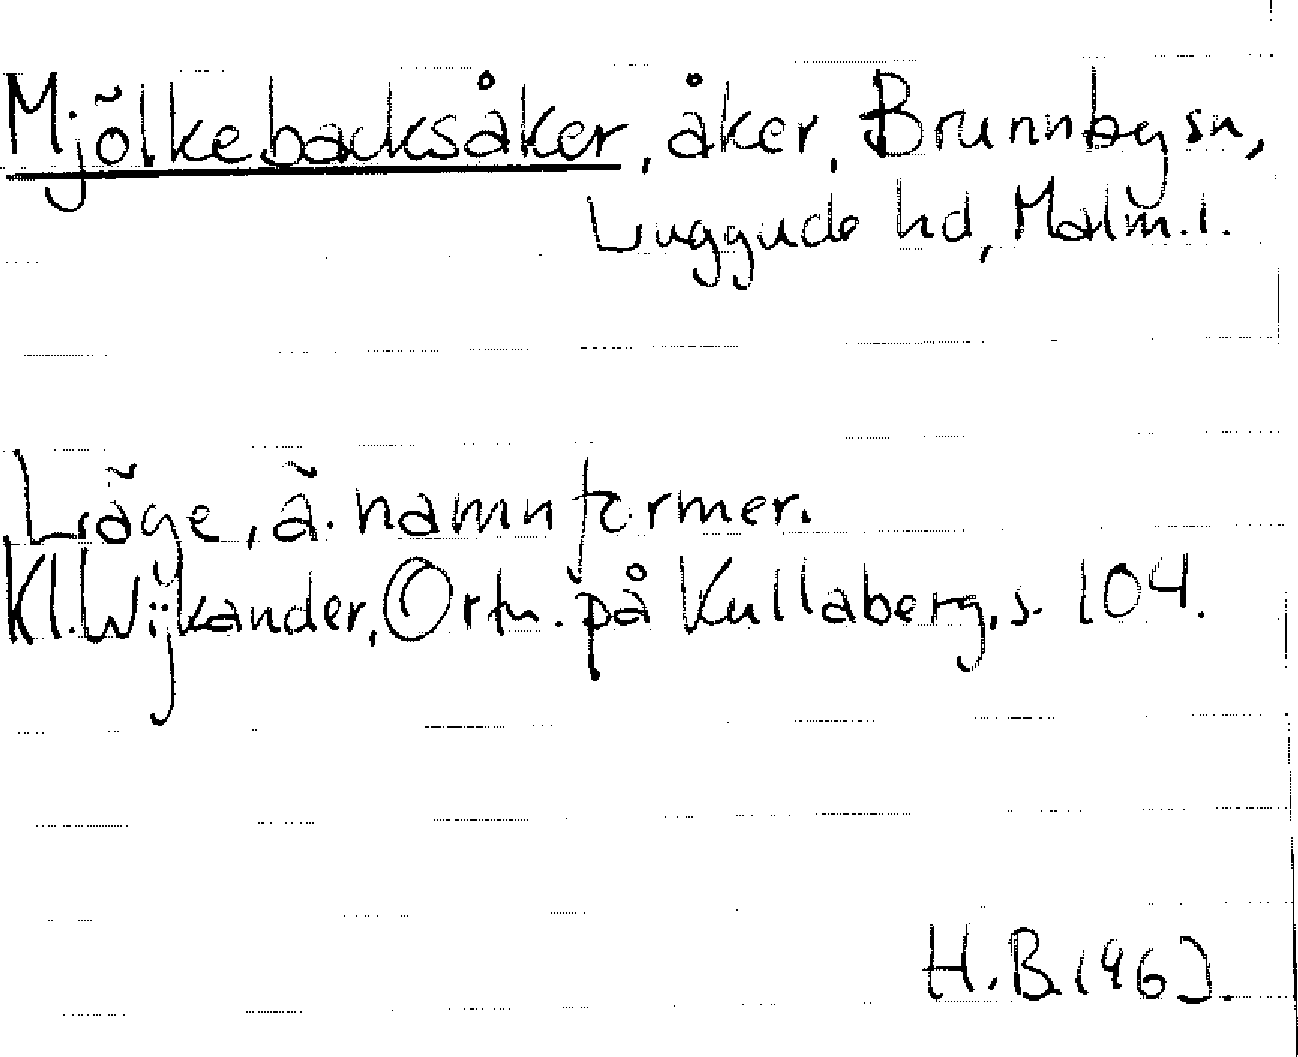 Mjölkebacksåker, åker, Brunnby sn,
Luggude hd, Malm.l.
Läge, ä. namnformer.
Kl. Wijkander, Ortn. på Kullaberg, s. 104.
H.B. 1963.